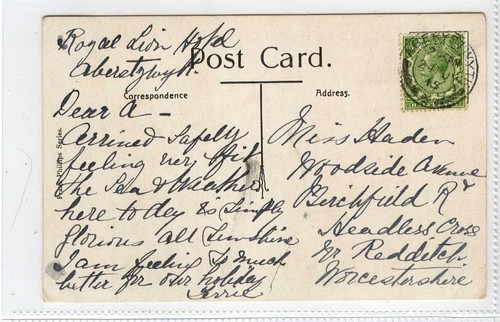 Royal Lion Hotel
Aberystwyth.
Post Card.
Correspondence
Address.
Dear A -
Arrived Safely
feeling very fit
The Sea & Weather
here to day is Simply
glorious all Sunshine
I am feeling so much
better for our holiday
Miss Haden
Woodside Avenue
Birchfield Rd
Headless Cross
Nr Redditch
Worcestershire